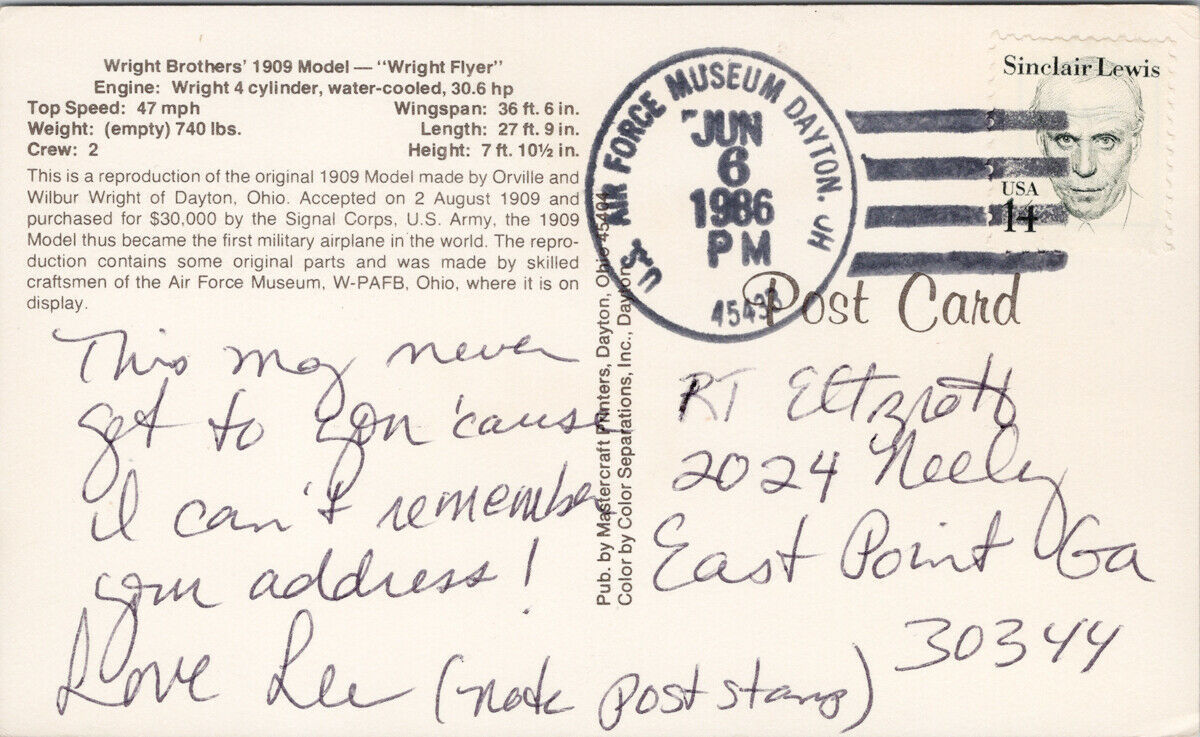 Wright Brothers' 1909 Model — "Wright Flyer"
Engine: Wright 4 cylinder, water-cooled, 30.6 hp
Top Speed: 47 mph Wingspan: 36 ft. 6 in.
Weight: (empty) 740 lbs. Length: 27 ft. 9 in.
Crew: 2 Height: 7 ft. 10½ in.
This is a reproduction of the original 1909 Model made by Orville and
Wilbur Wright of Dayton, Ohio. Accepted on 2 August 1909 and
purchased for $30,000 by the Signal Corps, U.S. Army, the 1909
Model thus became the first military airplane in the world. The repro-
duction contains some original parts and was made by skilled
craftsmen of the Air Force Museum, W-PAFB, Ohio, where it is on
display.
This may never
get to you 'cause
I can't remember
your address!
Love Lee (note post stamp)
Pub. by Mastercraft Printers, Dayton, Ohio 45404
Color by Color Separations, Inc., Dayton
U.S. AIR FORCE MUSEUM DAYTON, OH
JUN
6
1986
PM
Sinclair Lewis
USA
14
Post Card
RT Eltzroth
2024 Neely
East Point Ga
30344